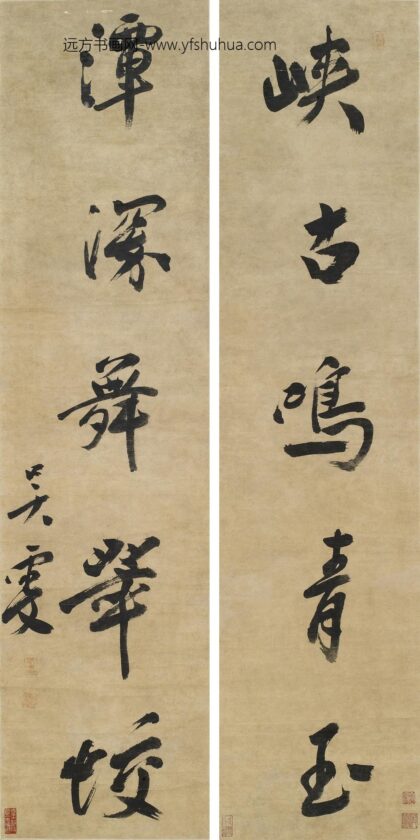 远方书画网-www.yfshuhua.com
峽
古
鳴
青
玉
潭
深
舞
翠
蛟
吳雯